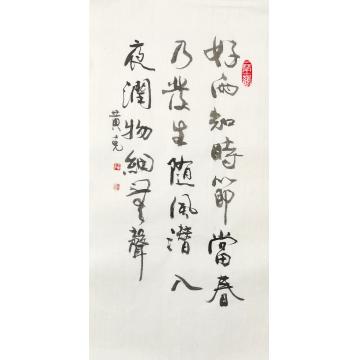 好雨知時節當春
乃發生随風潛入
夜潤物細無聲
黄克